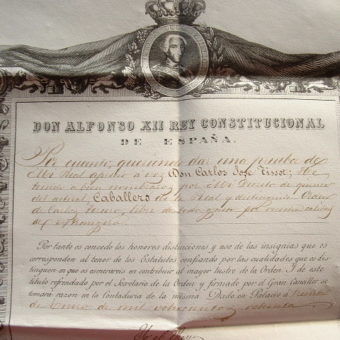 DON ALFONSO XII REY CONSTITUCIONAL
DE ESPAÑA.
Por cuanto, queriendo dar una prueba de
Mi Real aprecio a vos Don Carlos José
tenido a bien nombraros por Mi Decreto de
del actual, Caballero de la Real y distinguida Orden
de Carlos Tercero, libre de
del
Por tanto os concedo los honores, distinciones y uso de las insignias que os
corresponden al tenor de los Estatutos confiando por las cualidades que os dis-
tinguen en que os esmerareis en contribuir al mayor lustre de la Orden. Y de este
título refrendado por el Secretario de la Orden y firmado por el Gran Canciller se
tomará razon en la Contaduria de la misma. Dado en Palacio á
de Enero de mil ochocientos ochenta